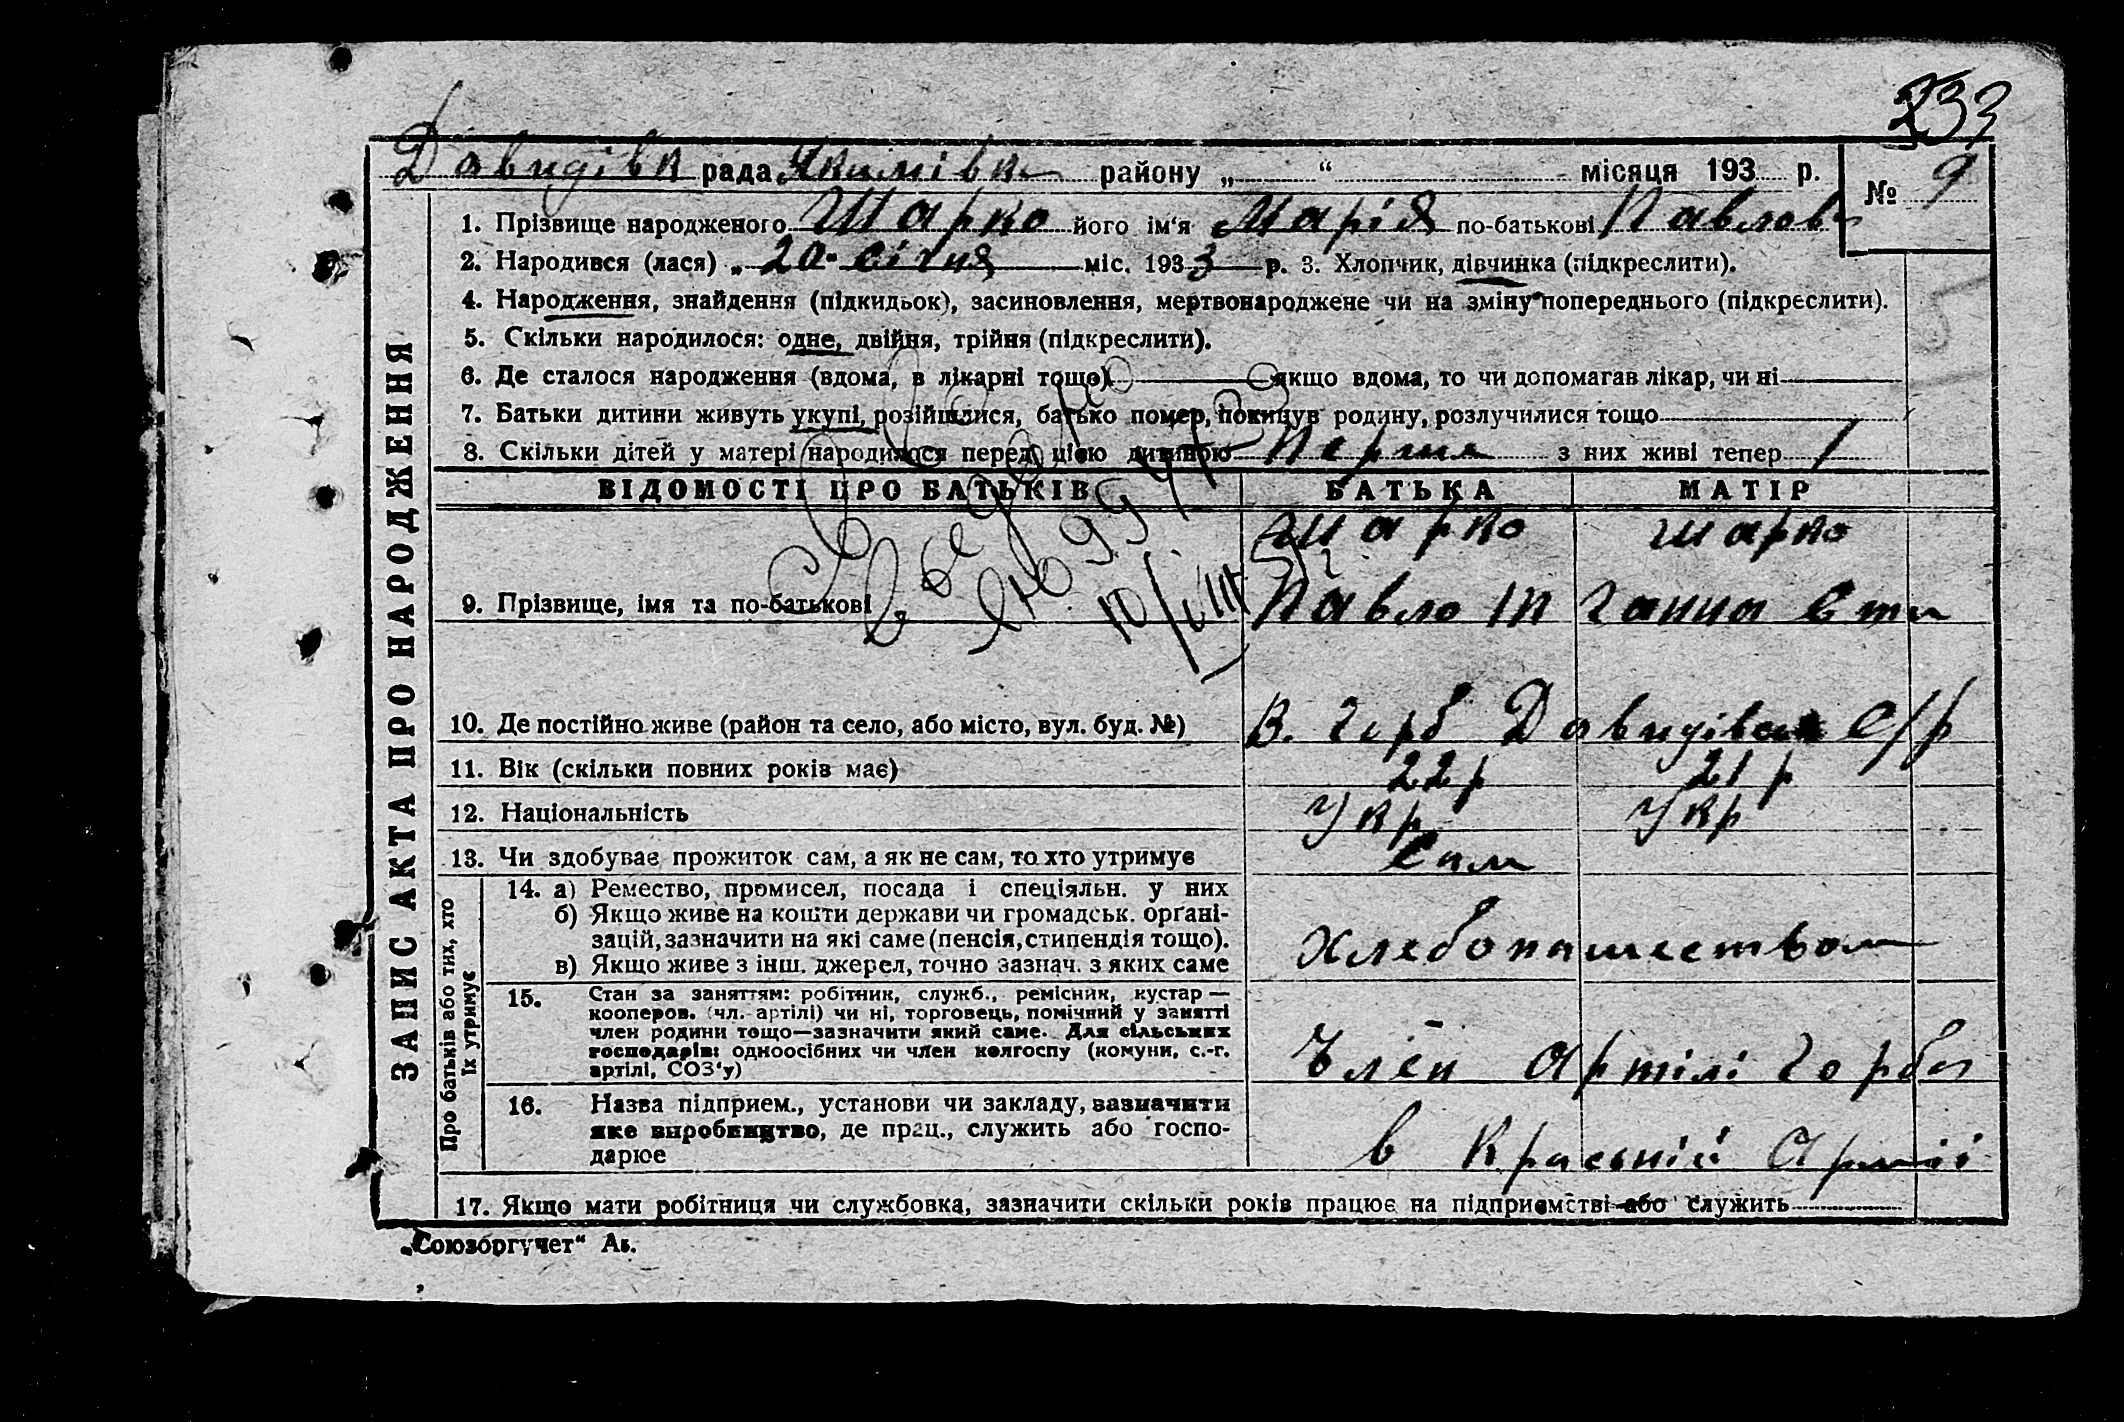 233
Давидівк рада Якимівк району „ “ місяця 193 р.
№ 9
1. Прізвище народженого Шарко його ім‘я Марія по-батькові Павлов
2. Народився (лася) „ 20 січня міс. 193 3 р. 3. Хлопчик, дівчинка (підкреслити).
4. Народження, знайдення (підкидьок), засиновлення, мертвонароджене чи на зміну попереднього (підкреслити).
5. Скільки народилося: одне, двійня, трійня (підкреслити).
6. Де сталося народження (вдома, в лікарні тощо) якщо вдома, то чи допомагав лікар, чи ні
7. Батьки дитини живуть укупі, розійшлися, батько помер, покинув родину, розлучилися тощо
8. Скільки дітей у матері народилося перед цією дитиною Перша з них живі тепер 1
ВІДОМОСТІ ПРО БАТЬКІВ БАТЬКА МАТІР
Шарко Шарко
9. Прізвище, імя та по-батькові Павло Ганна
10. Де постійно живе (район та село, або місто, вул. буд. №) В. Горб С/р
11. Вік (скільки повних років має) 22 р 21 р
12. Національність Укр Укр
13. Чи здобуває прожиток сам, а як не сам, то хто утримує Сам
14. а) Ремество, промисел, посада і спеціяльн. у них
б) Якщо живе на кошти держави чи громадськ. органі-
зацій, зазначити на які саме (пенсія, стипендія тощо).
в) Якщо живе з інш. джерел, точно зазнач. з яких саме
Хлебопашеством
15. Стан за заняттям: робітник, служб., ремісник, кустар —
кооперов. (чл. артілі) чи ні, торговець, помічний у занятті
член родини тощо—зазначити який саме. Для сільських
господарів: одноосібних чи член колгоспу (комуни, с.-г.
артілі, СОЗ‘у)
Член Артілі Горба
16. Назва підприєм., установи чи закладу, зазначити
яке виробництво, де прац., служить або госпо-
дарює
в Красьній Армії
17. Якщо мати робітниця чи службовка, зазначити скільки років працює на підприємстві або служить
ЗАПИС АКТА ПРО НАРОДЖЕННЯ
Про батьків або тих, хто
їх утримує
„Союзоргучет“ Ак.